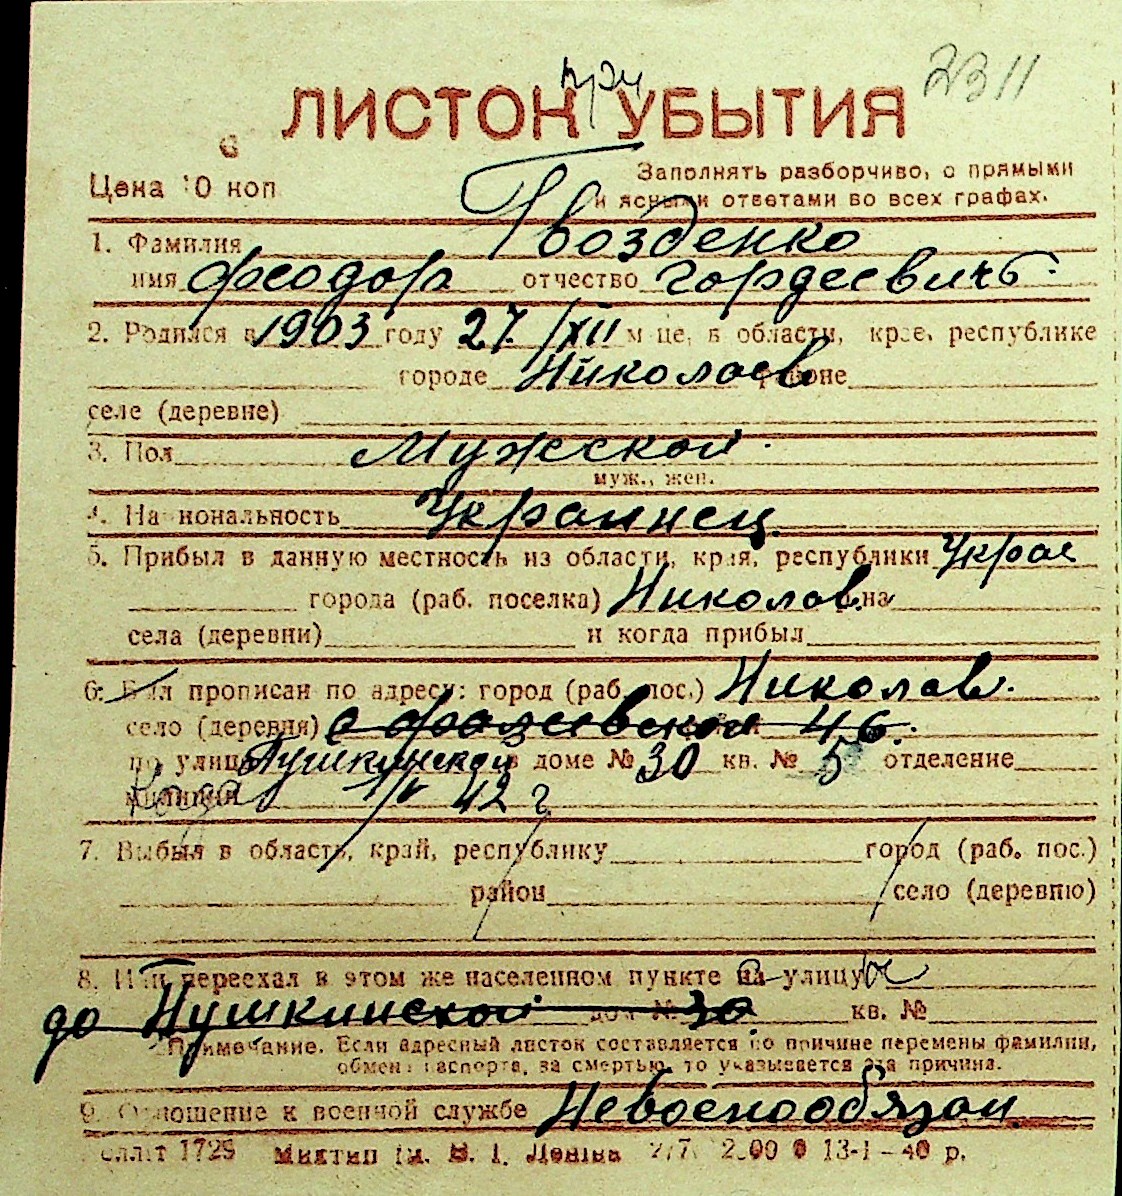 при 2311
ЛИСТОК УБЫТИЯ
Цена 10 коп
Заполнять разборчиво, с прямыми
и ясными ответами во всех графах.
1. Фамилия Гвозденко
имя Феодор отчество Гордеевичь
2. Родился в 1903 году 27/XII м-це, в области, крае, республике
городе Николаев районе
селе (деревне)
3. Пол Мужской
муж., жен.
4. Национальность Украинец
5. Прибыл в данную местность из области, края, республики Украс
города (раб. поселка) Николаев на
села (деревни) и когда прибыл
6. Был прописан по адресу: город (раб. пос.) Николаев.
село (деревня) 46.
по улице Пушкинской в доме № 30 кв. № 5 отделение
милиции 42 г
7. Выбыл в область, край, республику город (раб. пос.)
район село (деревню)
8. Или переехал в этом же населенном пункте на улицу
до Пушкинской дом № 30 кв. №
Примечание. Если адресный листок составляется по причине перемены фамилии,
обмена паспорта, за смертью, то указывается эта причина.
9. Отношение к военной службе Невоенообязан
1729 им. В. І. Леніна 13-І-40 р.